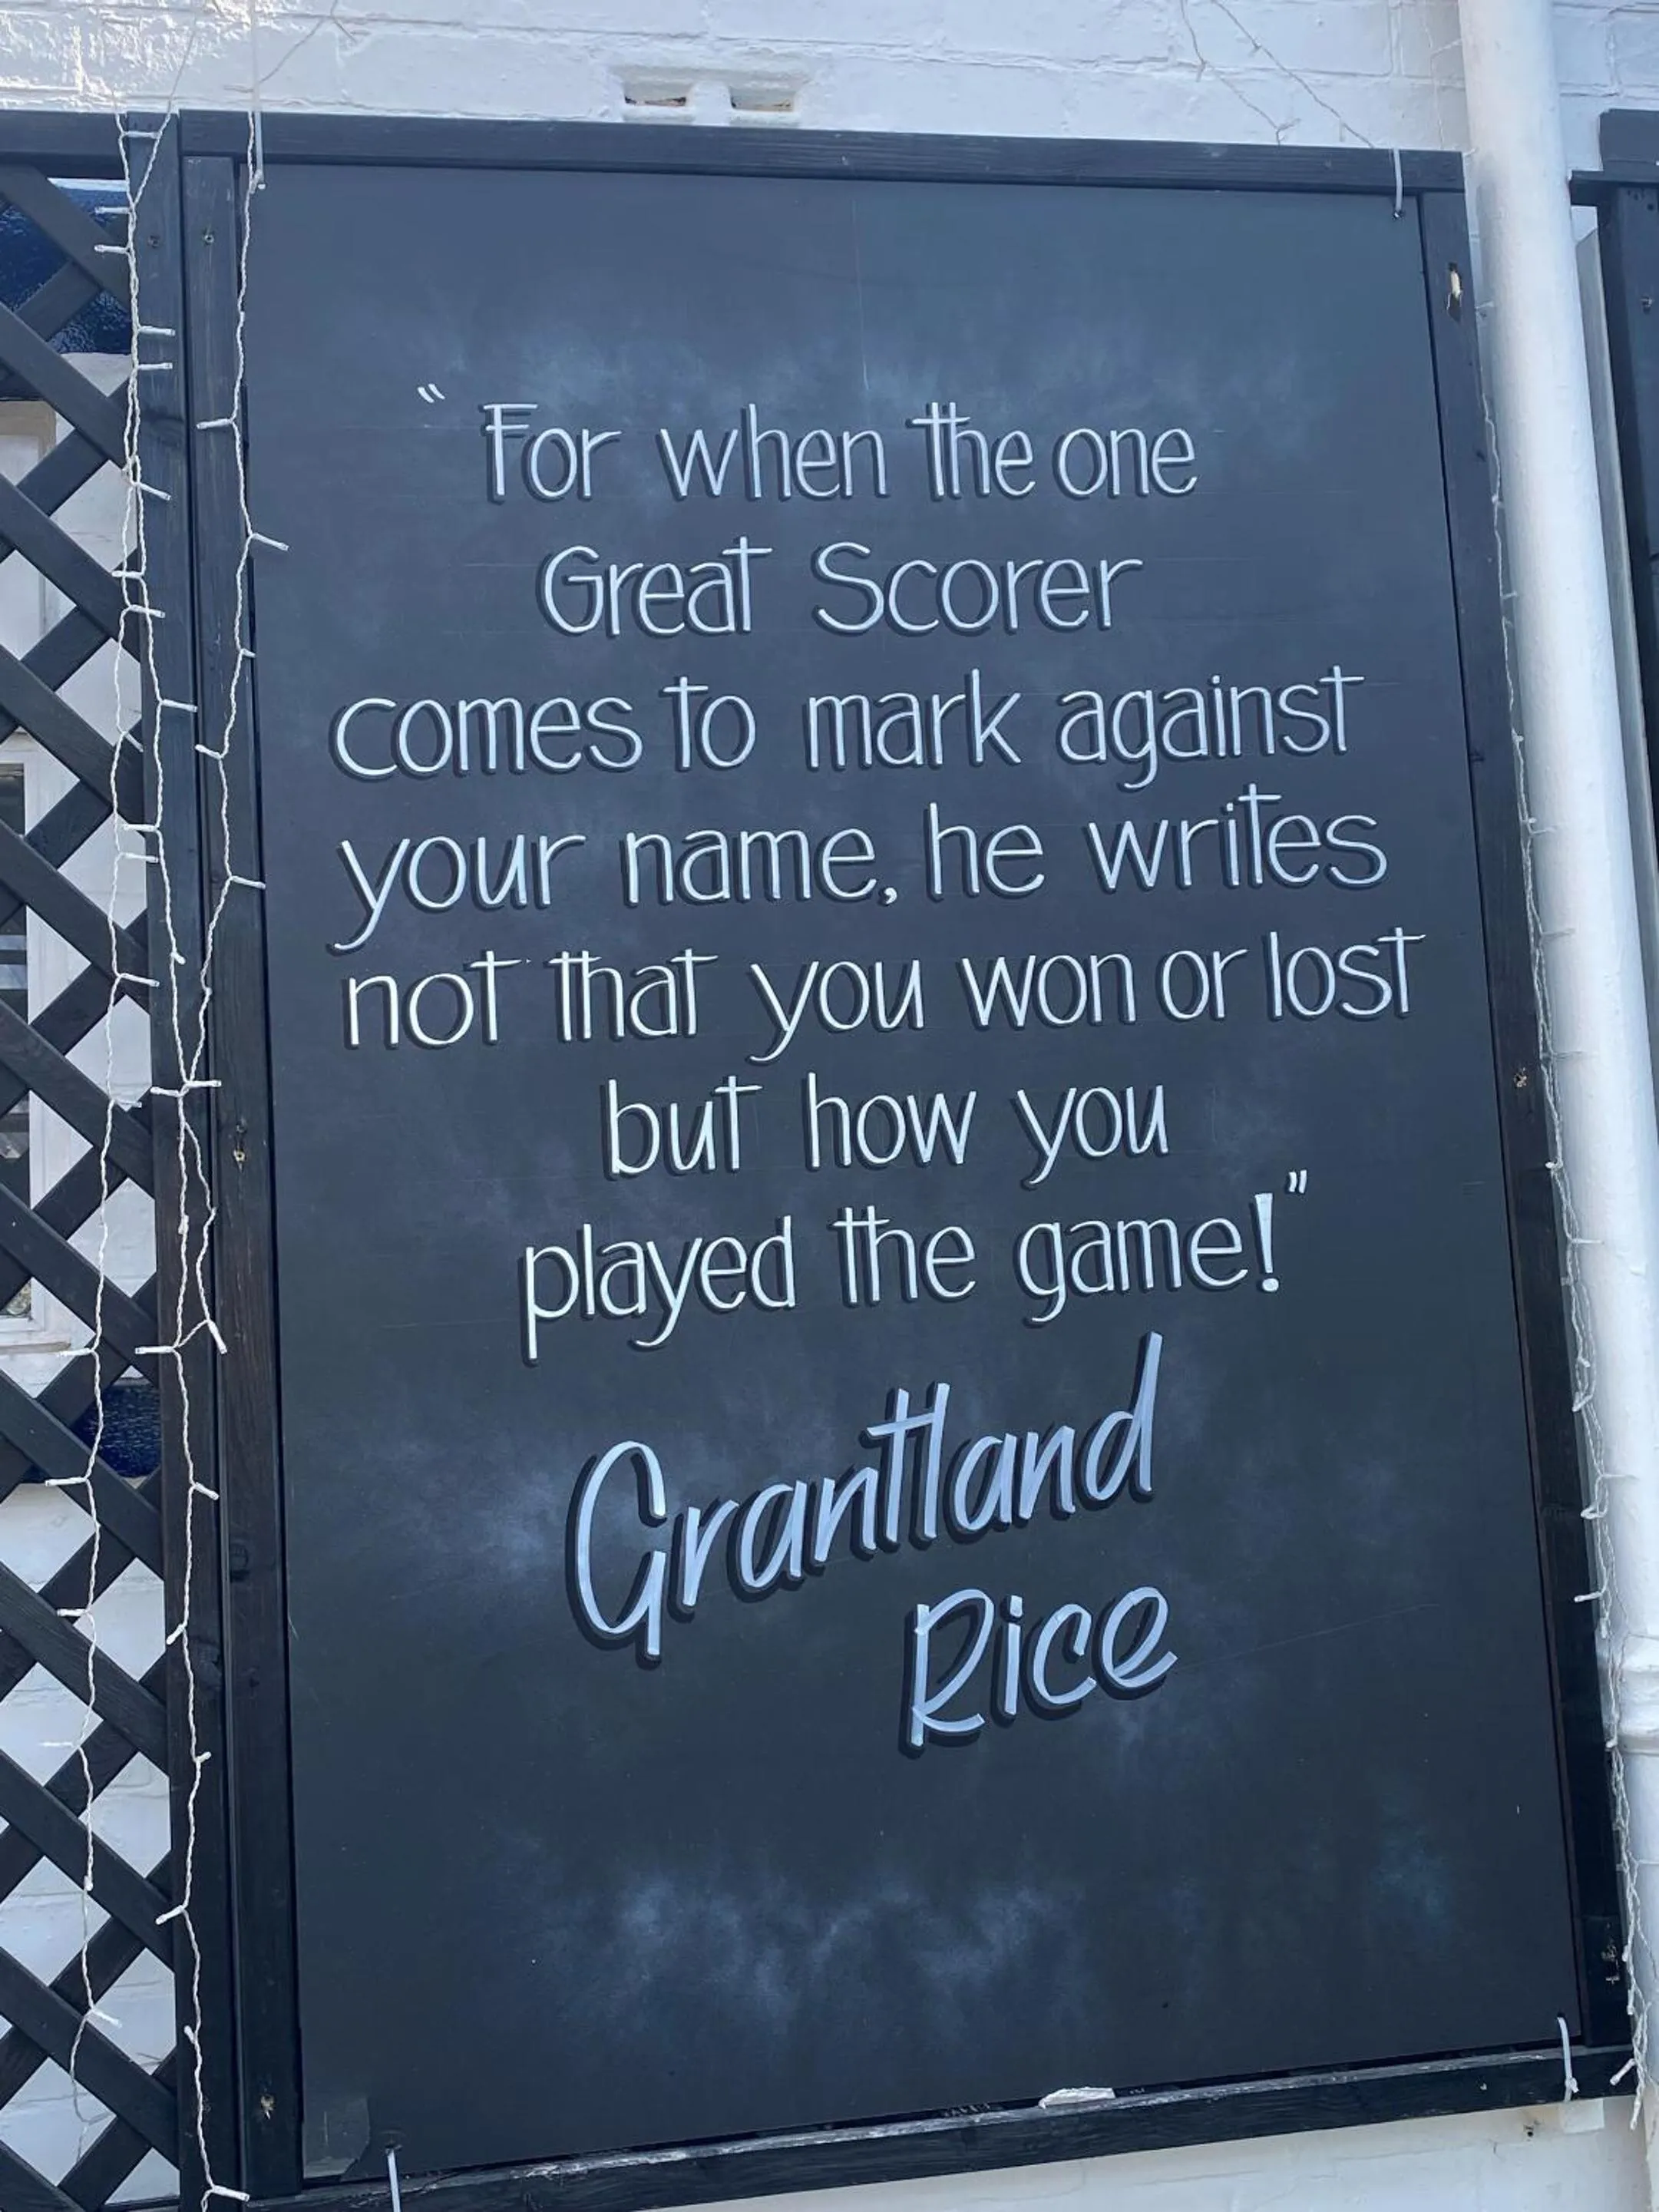 “For when the one
Great Scorer
comes to mark against
your name, he writes
not that you won or lost
but how you
played the game!”
Grantland
Rice